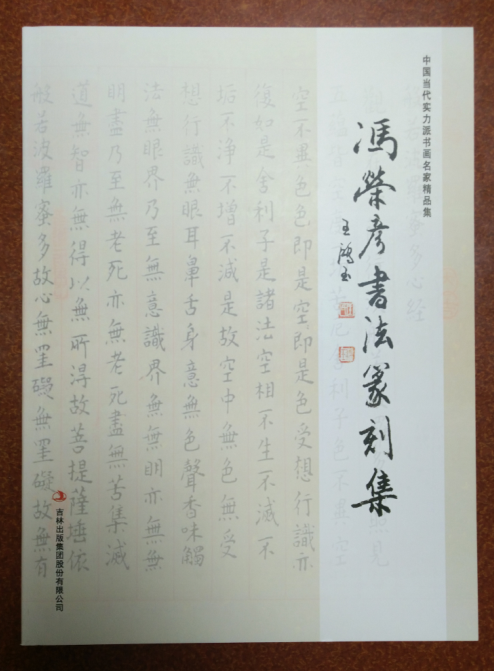 中国当代实力派书画名家精品集
馮榮彦書法篆刻集
空不異色色即是空空即是色受想行識亦
復如是舍利子是諸法空相不生不滅不
垢不淨不增不減是故空中無色無受
想行識無眼耳鼻舌身意無色聲香味觸
法無眼界乃至無意識界無無明亦無無
明盡乃至無老死亦無老死盡無苦集滅
道無智亦無得以無所得故菩提薩埵依
般若波羅蜜多故心無罣礙無罣礙故無有
吉林出版集团股份有限公司